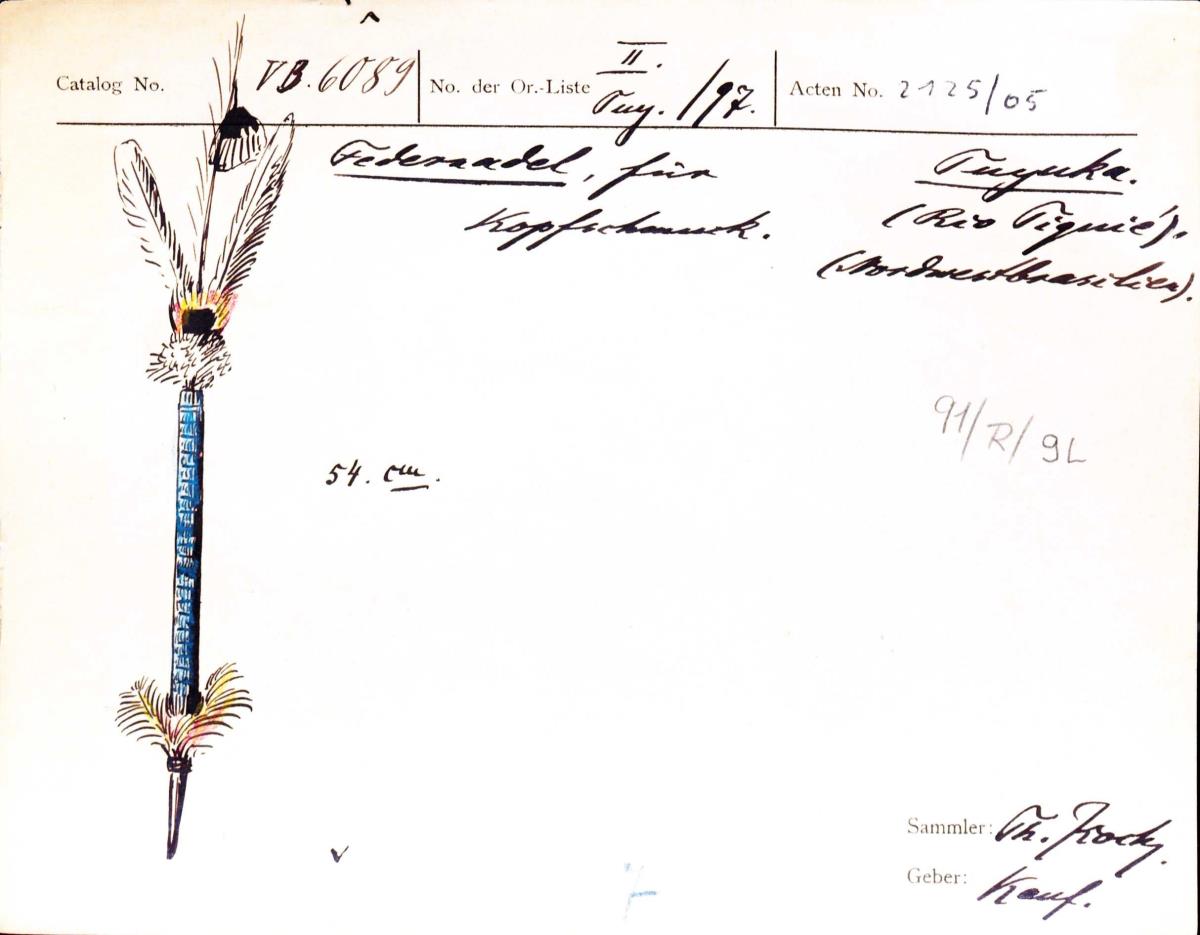 Catalog No. VB. 6089 No. der Or.-Liste II. Tuy. /97. Acten No. 2125/05
Federnadel, für Tuyuka.
Kopfschmuck. (Rio Tiquié).
(Nordwestbrasilien).
91/R/9L
54. cm.
Sammler: Th. Koch.
Geber: Kauf.